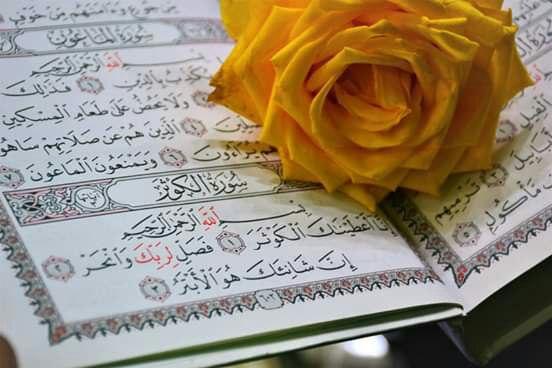 مِّن جُوعٍ وَءَامَنَهُم مِّنْ خَوْفٍ
سُورَةُ الْمَاعُونِ
بِسْمِ اللَّهِ الرَّحْمَٰنِ الرَّحِيمِ
يُكَذِّبُ بِالدِّينِ ١ فَذَٰلِكَ
٢ وَلَا يَحُضُّ عَلَىٰ طَعَامِ الْمِسْكِينِ
الَّذِينَ هُمْ عَن صَلَاتِهِمْ سَاهُونَ
يُرَاءُونَ ٦ وَيَمْنَعُونَ الْمَاعُونَ ٧
سُورَةُ الْكَوْثَرِ
بِسْمِ اللَّهِ الرَّحْمَٰنِ الرَّحِيمِ
إِنَّا أَعْطَيْنَاكَ الْكَوْثَرَ ١ فَصَلِّ لِرَبِّكَ وَانْحَرْ ٢
إِنَّ شَانِئَكَ هُوَ الْأَبْتَرُ ٣
٦٠٢
تَرْمِيهِم
مَّأْكُولٍ